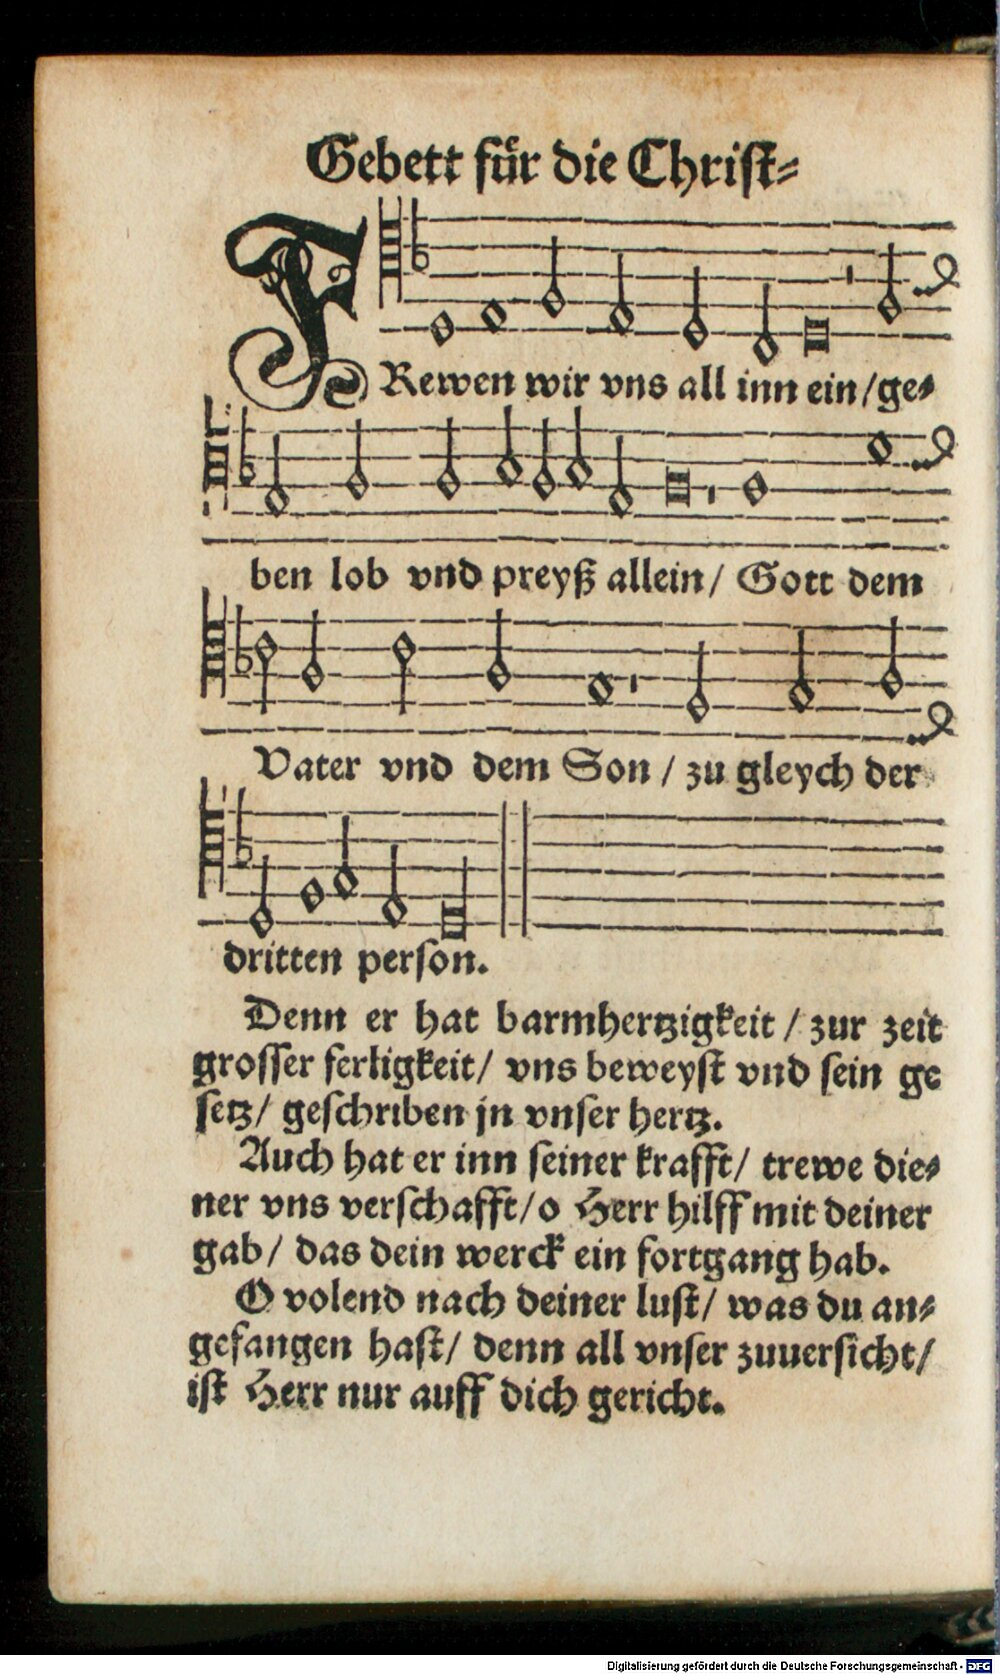 Gebett für die Christ⸗
FRewen wir vns all inn ein/ge⸗
ben lob vnd preyß allein/ Gott dem
Vater vnd dem Son / zu gleych der
dritten person.
Denn er hat barmhertzigkeit / zur zeit
grosser ferligkeit/ vns beweyst vnd sein ge
setz/ geschriben jn vnser hertz.
Auch hat er inn seiner krafft/ trewe die⸗
ner vns verschafft/o Herr hilff mit deiner
gab/ das dein werck ein fortgang hab.
O volend nach deiner lust/ was du an⸗
gefangen hast/ denn all vnser zuuersicht/
ist Herr nur auff dich gericht.
Digitalisierung gefördert durch die Deutsche Forschungsgemeinschaft - DFG